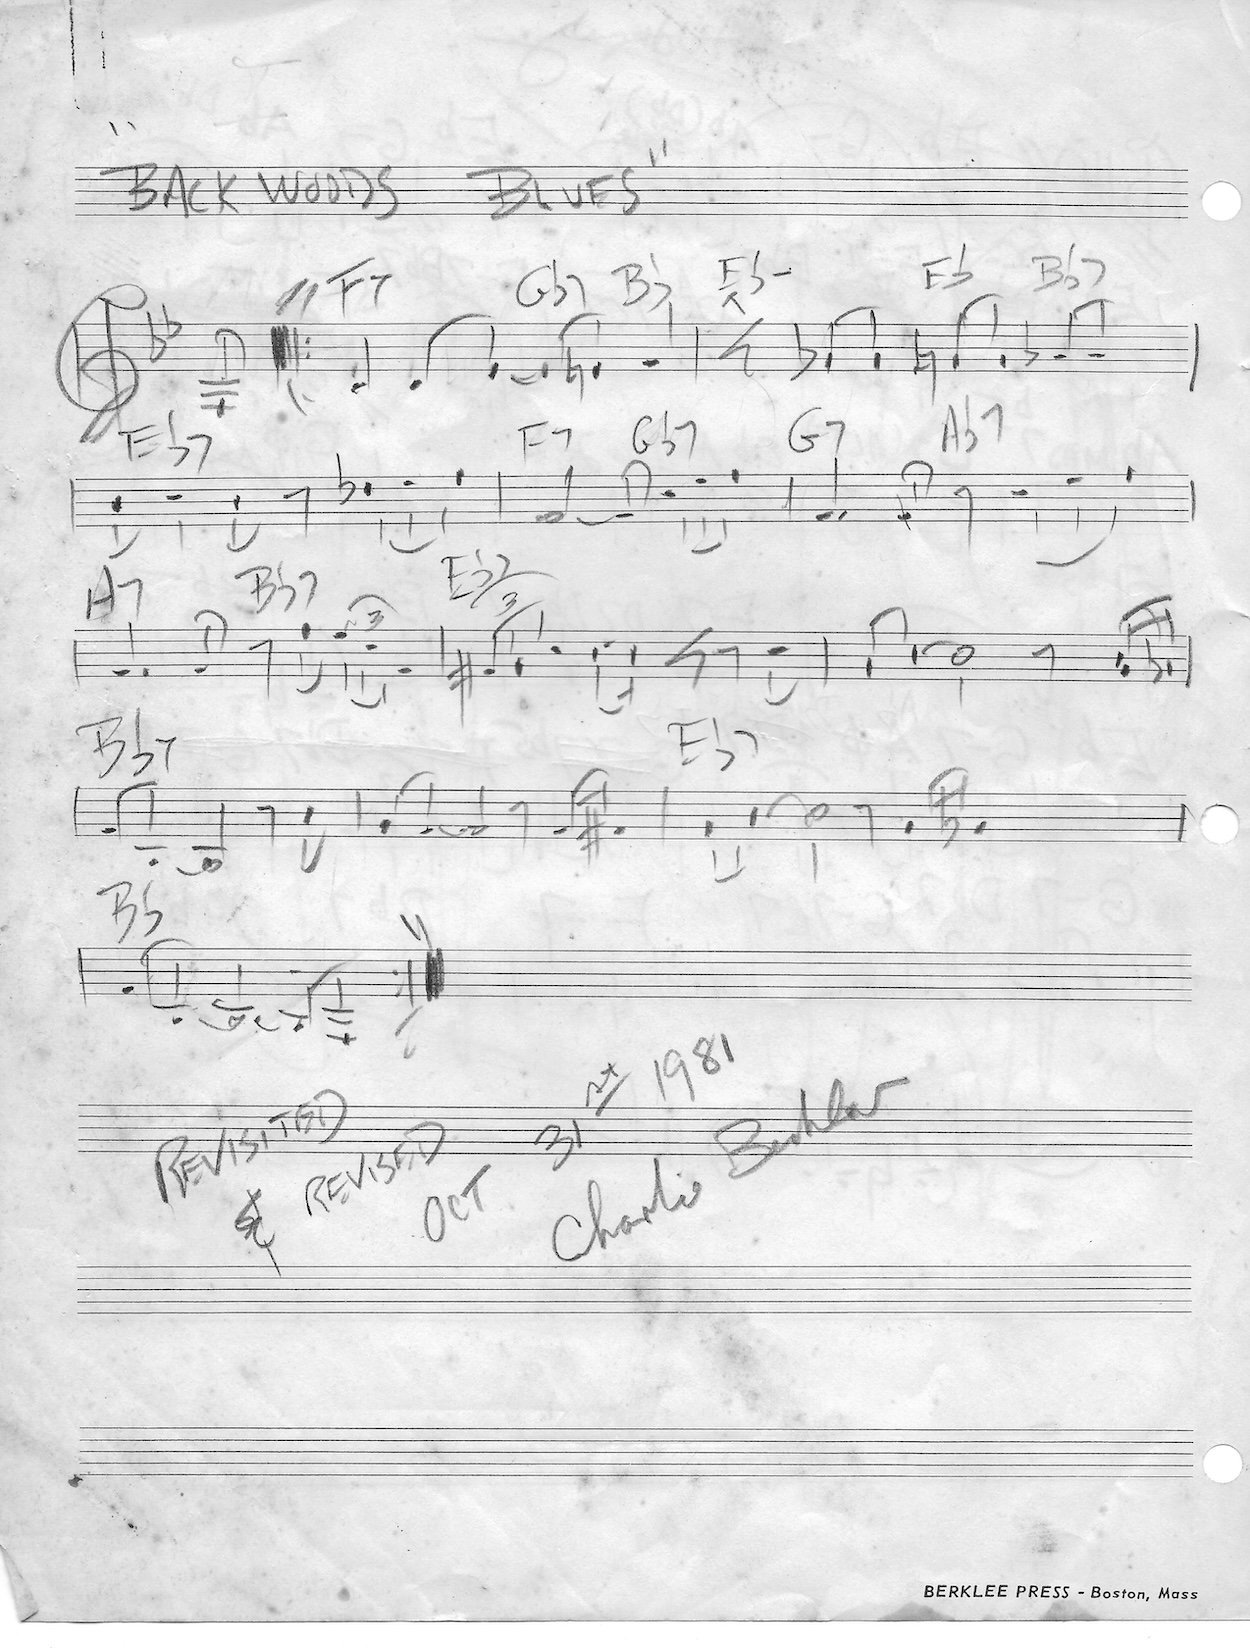 "BACKWOODS BLUES"
F7 Gb7 Bb Eb- Eb Bb7
Eb7 F7 Gb7 G7 Ab7
A7 Bb7 Eb7
3 3
Bb7 Eb7
Bb
REVISITED
& REVISED
OCT 31st 1981
Charlie
BERKLEE PRESS - Boston, Mass